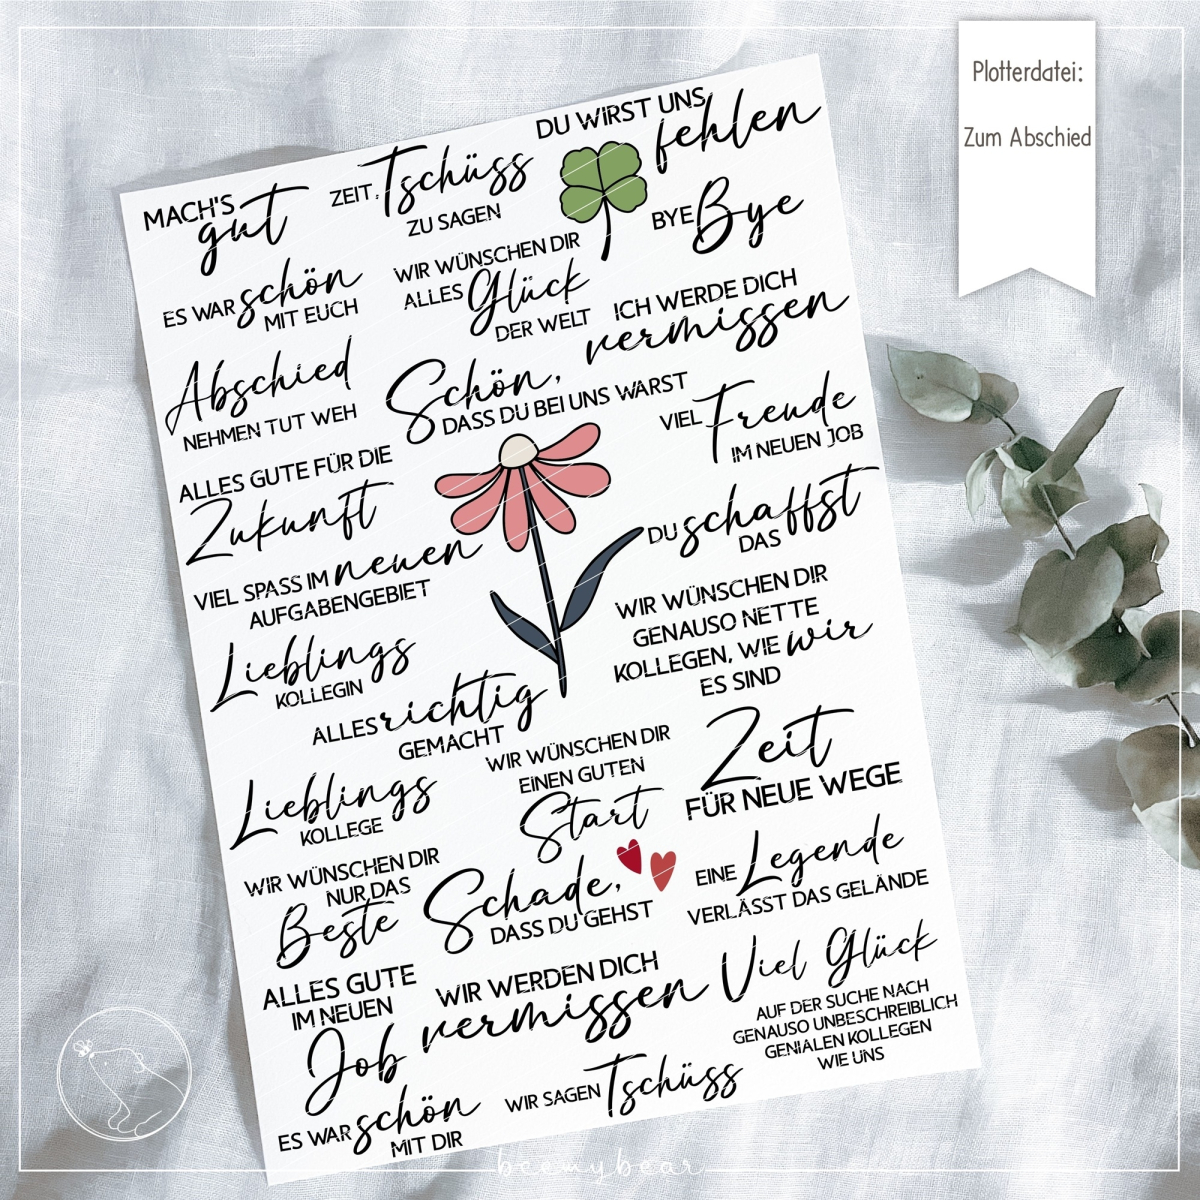 Plotterdatei:
Zum Abschied
DU WIRST UNS
fehlen
MACH'S
gut
ZEIT, Tschüss
ZU SAGEN
BYE Bye
ES WAR schön
MIT EUCH
WIR WÜNSCHEN DIR
ALLES Glück
DER WELT
ICH WERDE DICH
vermissen
Abschied
NEHMEN TUT WEH
Schön,
DASS DU BEI UNS WARST
VIEL Freude
IM NEUEN JOB
ALLES GUTE FÜR DIE
Zukunft
DU schaffst
DAS
VIEL SPASS IM neuen
AUFGABENGEBIET
WIR WÜNSCHEN DIR
GENAUSO NETTE
KOLLEGEN, WIE wir
ES SIND
Lieblings
KOLLEGIN
ALLES richtig
GEMACHT
WIR WÜNSCHEN DIR
EINEN GUTEN
Start
Zeit
FÜR NEUE WEGE
Lieblings
KOLLEGE
WIR WÜNSCHEN DIR
NUR DAS
Beste
Schade,
DASS DU GEHST
EINE Legende
VERLÄSST DAS GELÄNDE
ALLES GUTE
IM NEUEN
Job
WIR WERDEN DICH
vermissen
Viel Glück
AUF DER SUCHE NACH
GENAUSO UNBESCHREIBLICH
GENIALEN KOLLEGEN
WIE UNS
ES WAR schön
MIT DIR
WIR SAGEN Tschüss
beemybear